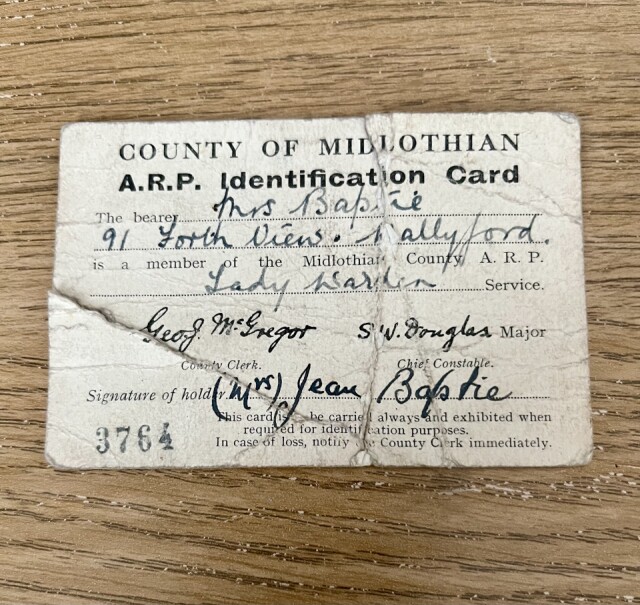 COUNTY OF MIDLOTHIAN
A.R.P. Identification Card
The bearer Mrs Baptie
91 Forth View. Wallyford.
is a member of the Midlothian County A. R. P.
Lady Warden Service.
Geo. J. McGregor S. W. Douglas Major
County Clerk. Chief Constable.
Signature of holder (Mrs) Jean Baptie
This card is to be carried always and exhibited when
required for identification purposes.
In case of loss, notify the County Clerk immediately.
3764